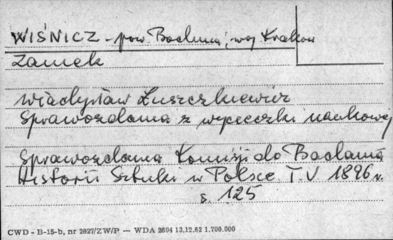 WIŚNICZ - pow. Bochnia, woj. Kraków
Zamek
Władysław Łuszczkiewicz
Sprawozdania z wycieczki naukowej
Sprawozdania Komisji do Badania
Historii Sztuki w Polsce T. V 1896 r.
s. 125
CWD - B-15-b, nr 2627/ZW/P — WDA 2694 13.12.62 1.700.000